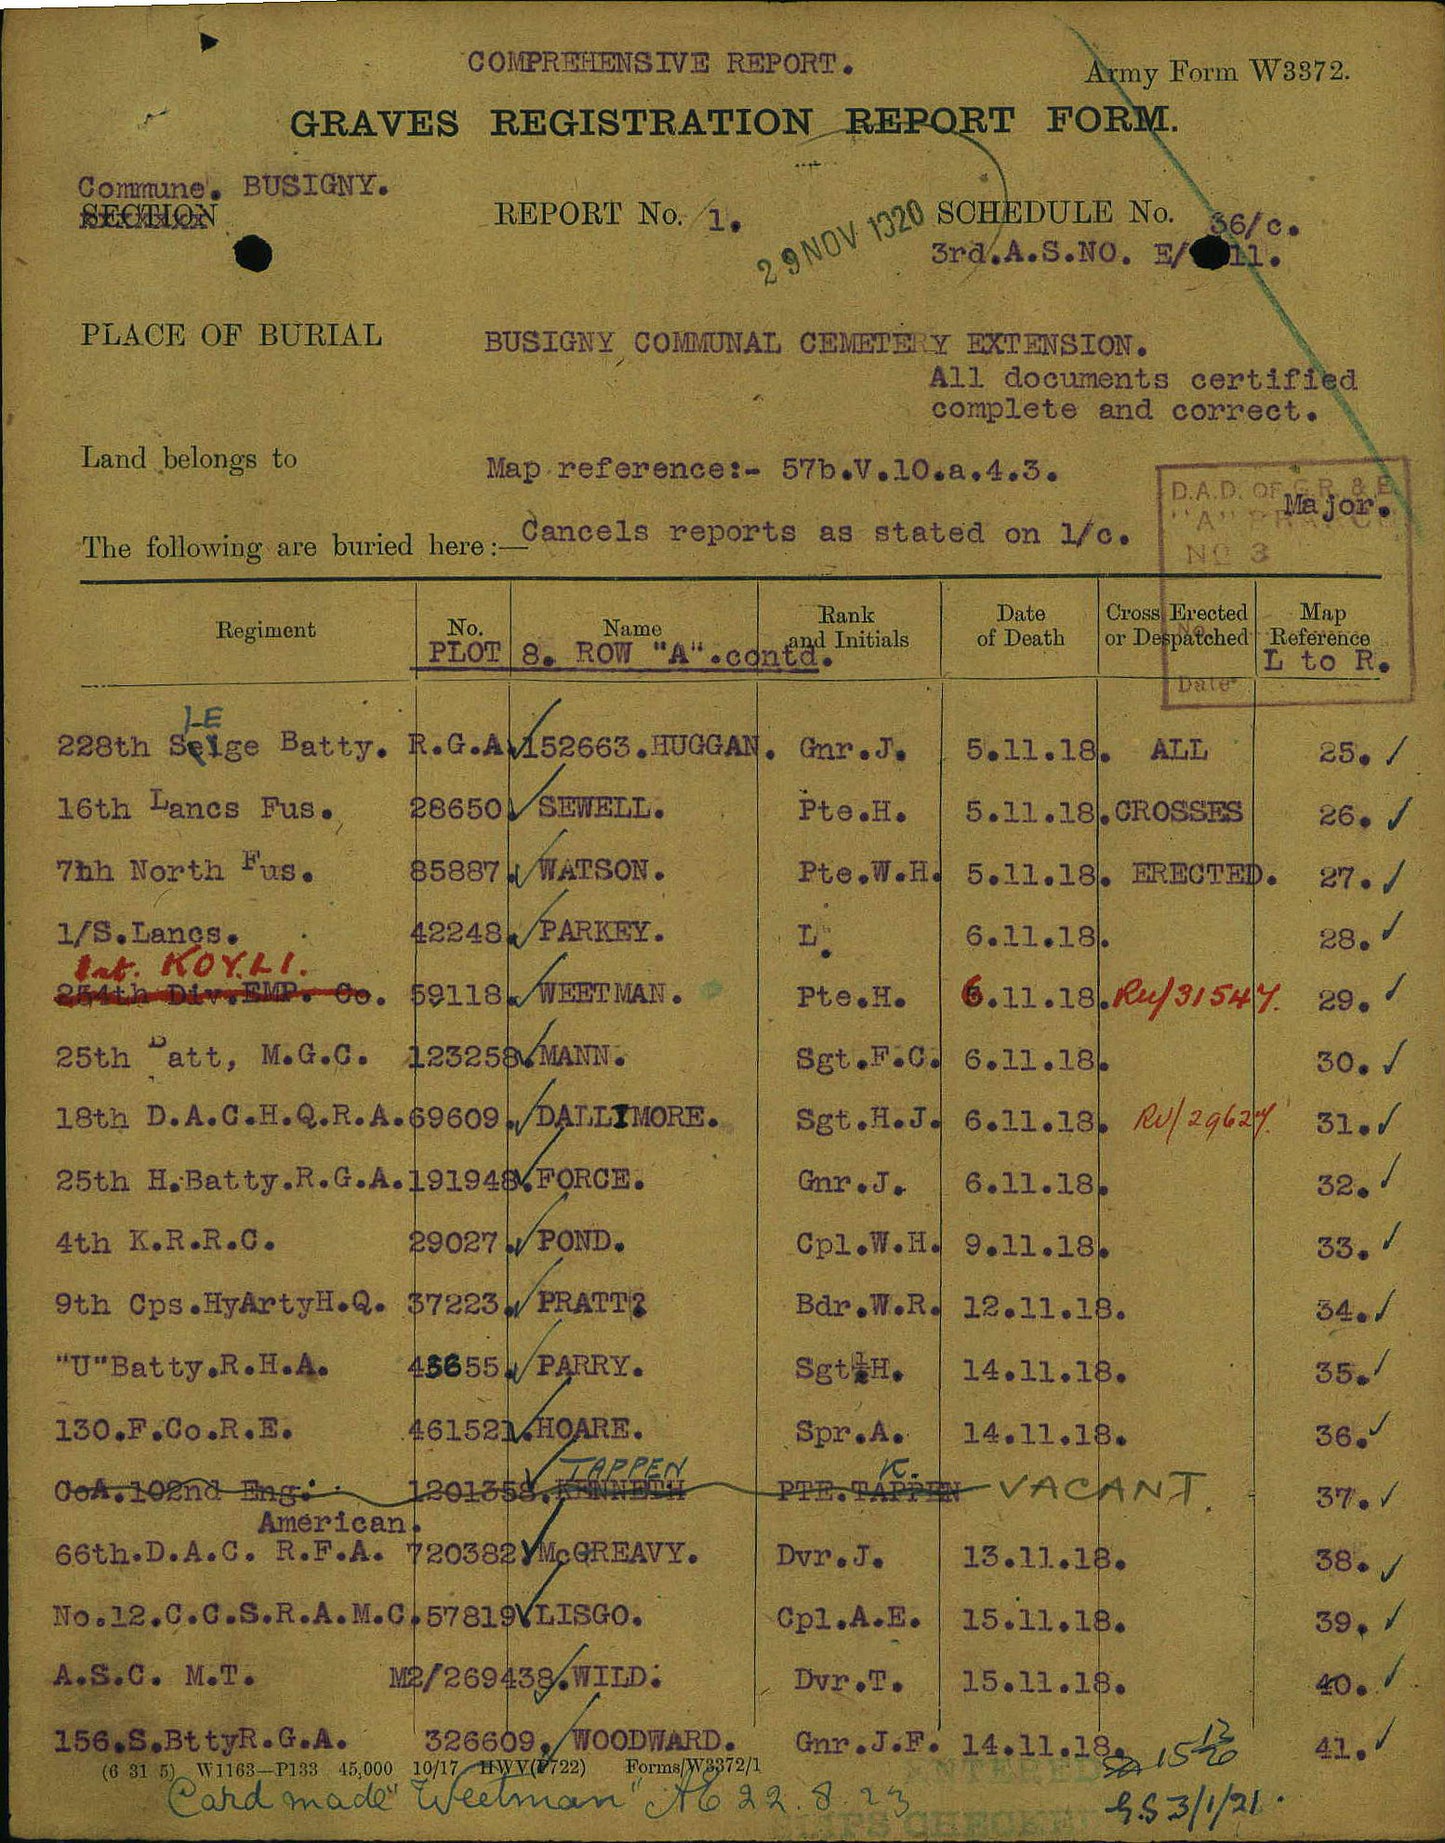 COMPREHENSIVE REPORT.
Army Form W3372.
GRAVES REGISTRATION REPORT FORM.
Commune. BUSIGNY.
SECTION
REPORT No. 1.
29 NOV 1920
SCHEDULE No. 36/c.
3rd.A.S.NO. E/ 11.
PLACE OF BURIAL
BUSIGNY COMMUNAL CEMETERY EXTENSION.
All documents certified
complete and correct.
Land belongs to
Map reference:- 57b.V.10.a.4.3.
D.A.D. OF G.R. & E
Major.
"A"
NO 3
Date
The following are buried here:— Cancels reports as stated on 1/c.
Regiment No. Name Rank and Initials Date of Death Cross Erected or Despatched Map Reference
PLOT 8. ROW "A".contd. L to R.
IE
228th Seige Batty. R.G.A. 152663. HUGGAN. Gnr.J. 5.11.18. ALL 25. ✓
16th Lancs Fus. 28650 ✓ SEWELL. Pte.H. 5.11.18. CROSSES 26. ✓
7hh North Fus. 85887. ✓ WATSON. Pte.W.H. 5.11.18. ERECTED. 27. ✓
1/S.Lancs. 42248. ✓ PARKEY. L. 6.11.18. 28. ✓
Int. KOYLI.
254th Div.EMP. Co. 59118. ✓ WEETMAN. Pte.H. 6.11.18. Ru/31547. 29. ✓
25th Batt, M.G.C. 123258. ✓ MANN. Sgt.F.C. 6.11.18. 30. ✓
18th D.A.C.H.Q.R.A. 69609. ✓ DALLIMORE. Sgt.H.J. 6.11.18. RU/29627. 31. ✓
25th H.Batty.R.G.A. 191948. ✓ FORCE. Gnr.J. 6.11.18. 32. ✓
4th K.R.R.C. 29027. ✓ POND. Cpl.W.H. 9.11.18. 33. ✓
9th Cps.HyArtyH.Q. 37223. ✓ PRATT? Bdr.W.R. 12.11.18. 34. ✓
"U"Batty.R.H.A. 45655. ✓ PARRY. Sgt.H. 14.11.18. 35. ✓
130.F.Co.R.E. 461521. ✓ HOARE. Spr.A. 14.11.18. 36. ✓
TAPPEN K.
CoA.102nd Eng: 1201358. KENNETH PTE.TAPPEN VACANT. 37. ✓
American.
66th.D.A.C. R.F.A. 720382. ✓ McGREAVY. Dvr.J. 13.11.18. 38. ✓
No.12.C.C.S.R.A.M.C. 57819 ✓ LISGO. Cpl.A.E. 15.11.18. 39. ✓
A.S.C. M.T. M2/269438. ✓ WILD. Dvr.T. 15.11.18. 40. ✓
156.S.BttyR.G.A. 326609. ✓ WOODWARD. Gnr.J.F. 14.11.18. 41. ✓
(6 31 5) W1163—P133 45,000 10/17 HWV(P722) Forms/W3372/1
15 12/20
ENTERED
Card made "Weetman" AE 22.8.23
G.S 3/1/21.
MAPS CHECKED